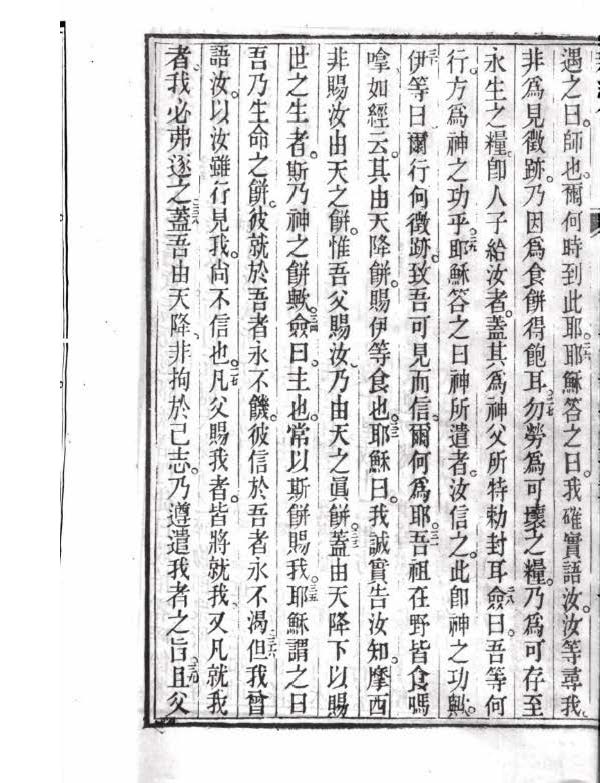 遇之曰。師也。爾何時到此耶。二六耶穌答之曰。我確實語汝。汝等尋我。
非爲見徵跡。乃因爲食餅得飽耳。二七勿勞爲可壞之糧。乃爲可存至
永生之糧。卽人子給汝者。蓋其爲神父所特勅封耳。二八僉曰。吾等何
行。方爲神之功乎。二九耶穌答之曰。神所遣者。汝信之。此卽神之功歟。
三十伊等曰。爾行何徵跡。致吾可見而信。爾何爲耶。三一吾祖在野皆食嗎
嗱。如經云。其由天降餅。賜伊等食也。三二耶穌曰。我誠實告汝知。摩西
非賜汝由天之餅。惟吾父賜汝。乃由天之眞餅。三三蓋由天降下以賜
世之生者。斯乃神之餅歟。三四僉曰。主也。常以斯餅賜我。三五耶穌謂之曰。
吾乃生命之餅。彼就於吾者永不饑。彼信於吾者永不渴。三六但我曾
語汝。以汝雖行見我。尙不信也。三七凡父賜我者。皆將就我。又凡就我
者。我必弗逐之。三八蓋吾由天降、非拘於己志。乃遵遣我者之旨。三九且父